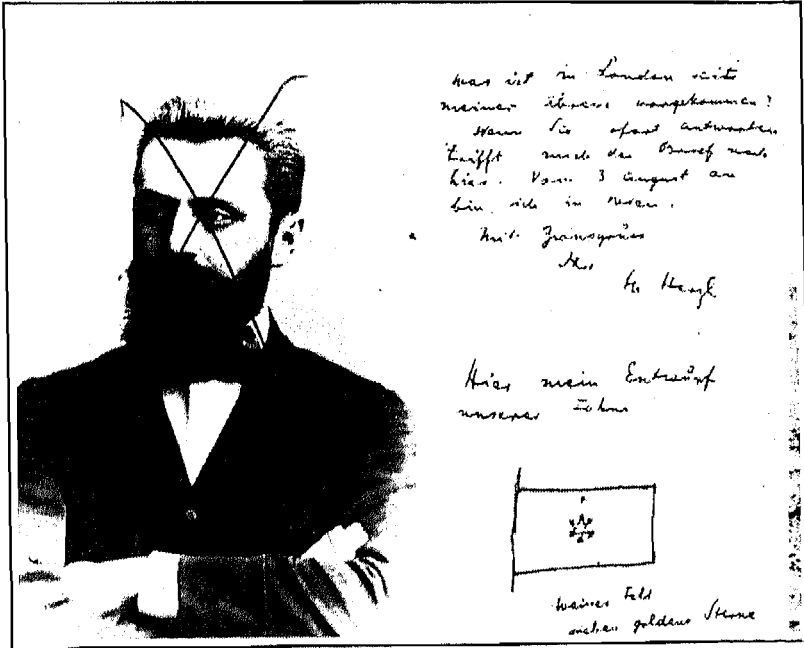 Was ist in London seit
meiner Abreise vorgekommen?
Wenn Sie sofort antworten
trifft mich der Brief noch
hier. Vom 3 August an
bin ich in
Mit Zionsgruss
Ihr
Th Herzl
Hier mein Entwurf
unserer Fahne
weisses Feld
sieben goldene Sterne